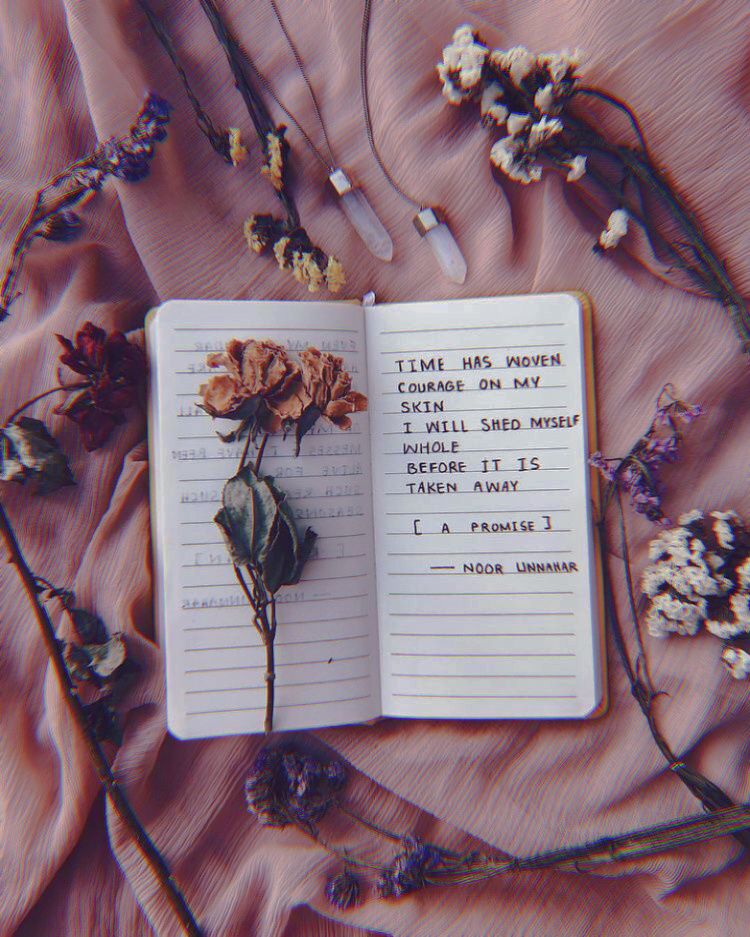 TIME HAS WOVEN
COURAGE ON MY
SKIN
I WILL SHED MYSELF
WHOLE
BEFORE IT IS
TAKEN AWAY
[ A PROMISE ]
— NOOR UNNAHAR